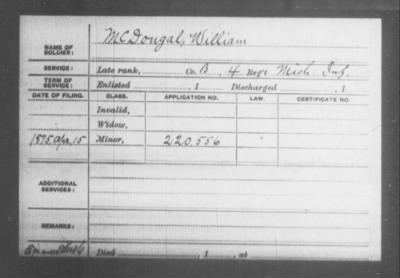 McDougal, William
NAME OF SOLDIER:
SERVICE: Late rank, Co. B, 4 Reg't Mich. Inf.
TERM OF SERVICE: Enlisted , 1 Discharged , 1
DATE OF FILING. CLASS. APPLICATION NO. LAW. CERTIFICATE NO.
Invalid,
Widow,
1875 Apr. 15 Minor, 220.556
ADDITIONAL SERVICES:
REMARKS:
Died , 1 , at